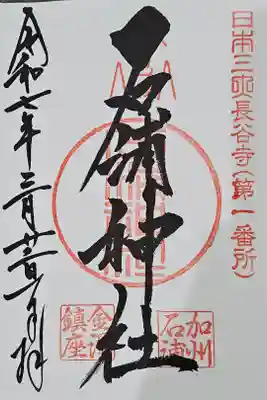 日本三所長谷寺(第一番所)
石浦神社
加州
石浦
金沢
鎮座
令和七年三月廿日拝